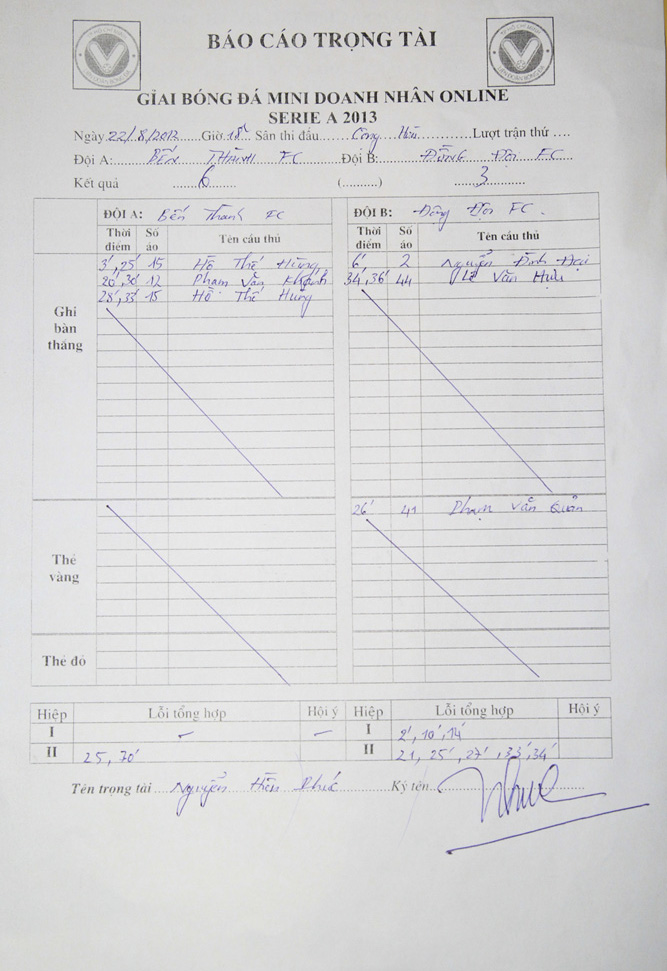 BÁO CÁO TRỌNG TÀI
LIÊN ĐOÀN BÓNG ĐÁ
LIÊN ĐOÀN BÓNG ĐÁ
GIẢI BÓNG ĐÁ MINI DOANH NHÂN ONLINE
SERIE A 2013
Ngày 22/8/2013 Giờ 18h Sân thi đấu Cộng Hòa Lượt trận thứ ....
Đội A: BẾN THÀNH FC Đội B: ĐỒNG ĐỘI FC
Kết quả 6 (..........) 3
ĐỘI A: Bến Thành FC ĐỘI B: Đồng Đội FC.
Thời điểm Số áo Tên cầu thủ Thời điểm Số áo Tên cầu thủ
Ghi bàn thắng
3', 25' 15 Hồ Thế Hùng 6' 2 Nguyễn Đình Đại
20', 30' 12 Phạm Văn Khánh 34', 36' 44 Lê Văn Hựu
28', 33' 15 Hồ Thế Hùng
Thẻ vàng
26' 41 Phạm Văn Quân
Thẻ đỏ
Hiệp Lỗi tổng hợp Hội ý Hiệp Lỗi tổng hợp Hội ý
I - - I 2', 10', 14'
II 25, 30' II 21, 25', 27', 33', 34'
Tên trọng tài Nguyễn Hiền Phúc Ký tên